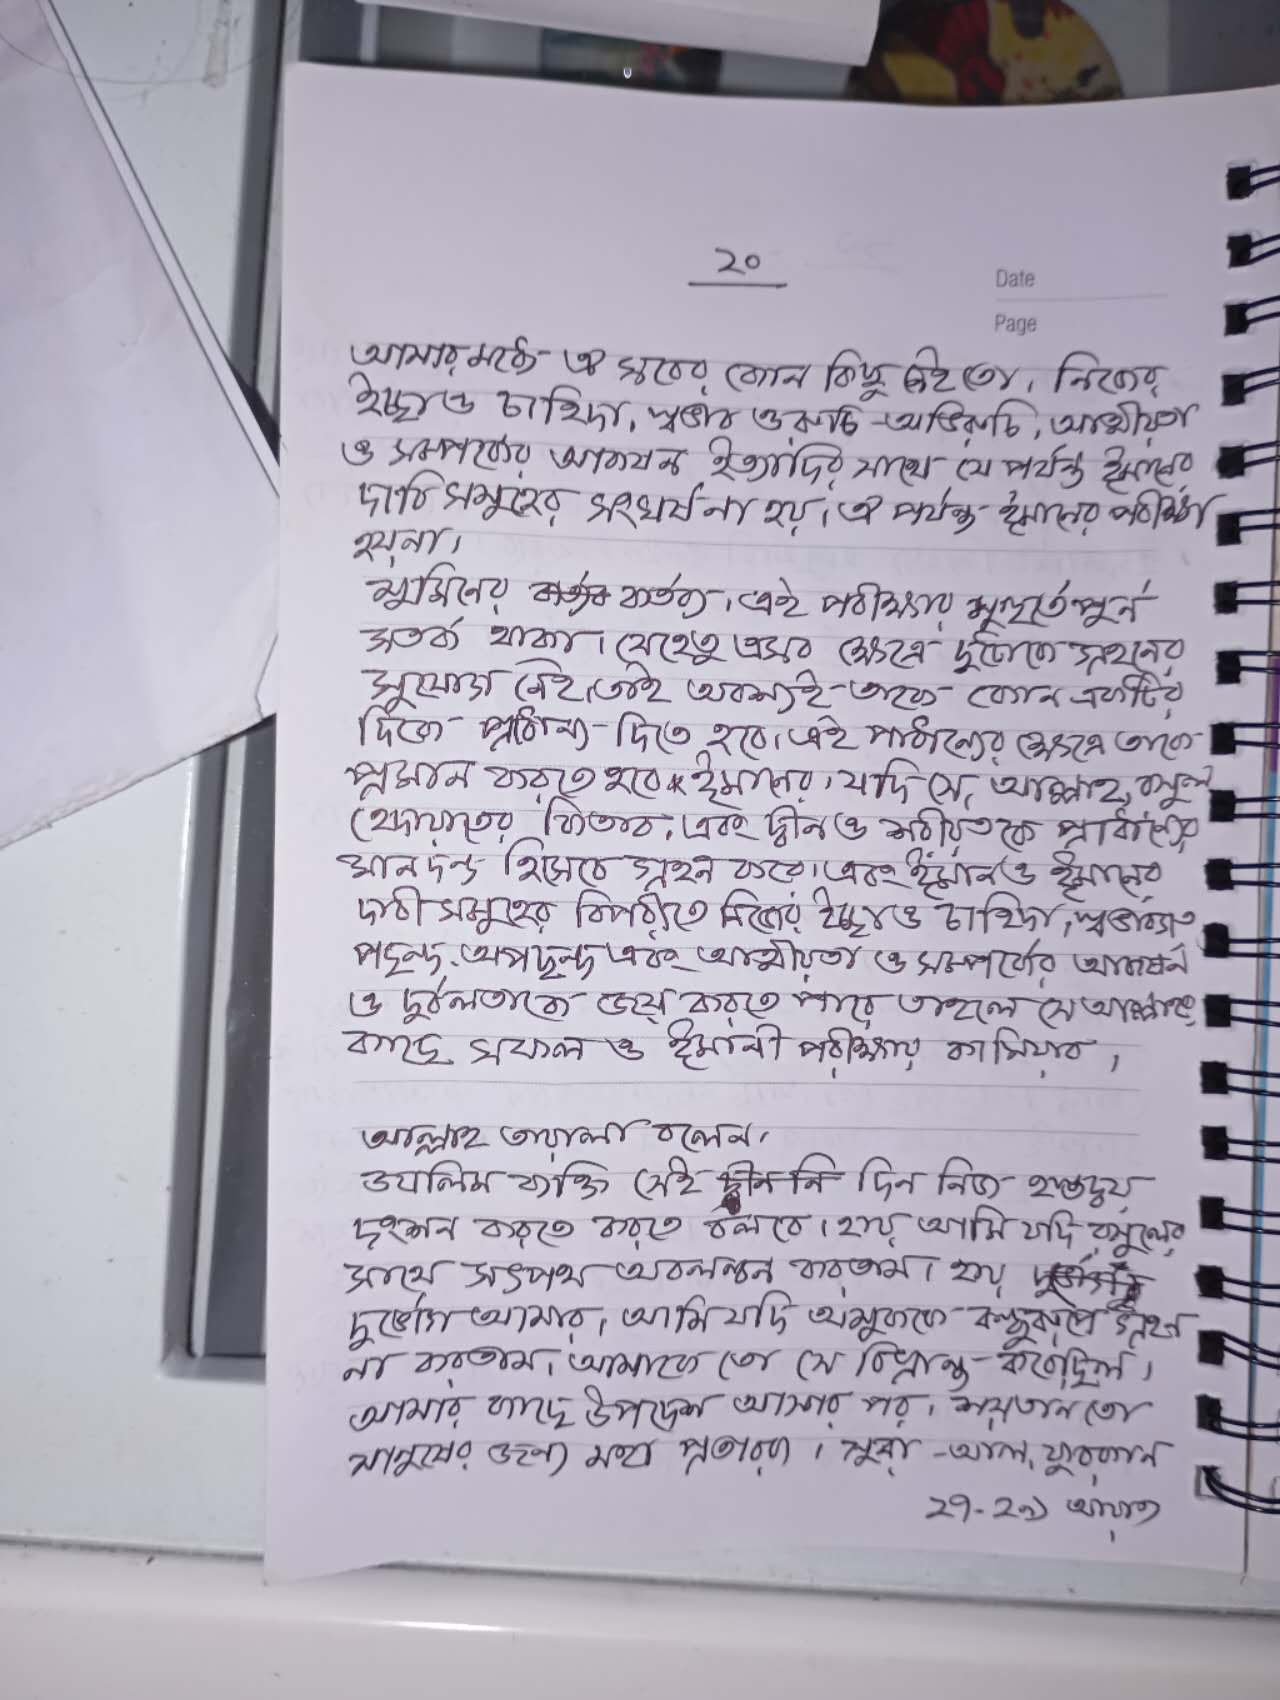 ২০
Date
Page
আমার মধ্যে ঐ স্তরের কোন কিছু নেই তো। নিজের
ইচ্ছা ও চাহিদা, স্বভাব ও রুচি-অভিরুচি, আত্মীয়তা
ও সম্পর্কের আকর্ষন ইত্যাদির সাথে যে পর্যন্ত ঈমানের
দাবি সমূহের সংঘর্ষ না হয়, ঐ পর্যন্ত ঈমানের পরীক্ষা
হয় না।
মুমিনের কর্তব্য, এই পরীক্ষার মূহুর্তে পূর্ন
সতর্ক থাকা। যেহেতু এসব ক্ষেত্রে দুটোকে গ্রহনের
সুযোগ নেই, তাই অবশ্যই তাকে কোন একটির
দিকে প্রাধান্য দিতে হবে। এই প্রাধান্যের ক্ষেত্রে তাকে
প্রমান করতে হবে ঈমানের। যদি সে, আল্লাহ, রসুল
হেদায়াতের কিতাব, এবং দ্বীন ও শরীয়তকে প্রাধান্যের
মানদন্ড হিসেবে গ্রহন করে। এবং ঈমান ও ঈমানের
দাবী সমূহের বিপরীতে নিজের ইচ্ছা ও চাহিদা, স্বভাবগত
পছন্দ, অপছন্দ এবং আত্মীয়তা ও সম্পর্কের আকর্ষন
ও দুর্বলতাকে জয় করতে পারে তাহলে সে আল্লাহর
কাছে সফল ও ঈমানী পরীক্ষায় কামিয়াব।
আল্লাহ তায়ালা বলেন।
জালিম ব্যক্তি সেই দিন নিজ হস্তদ্বয়
দংশন করতে করতে বলবে। হায় আমি যদি রসুলের
সাথে সৎপথ অবলম্বন করতাম। হায়
দুর্ভোগ আমার, আমি যদি অমুককে বন্ধুরূপে গ্রহণ
না করতাম। আমাকে তো সে বিভ্রান্ত করেছিল।
আমার কাছে উপদেশ আসার পর। শয়তান তো
মানুষের জন্য মহা প্রতারক। সুরা-আল, ফুরকান
২৭-২৯ আয়াত